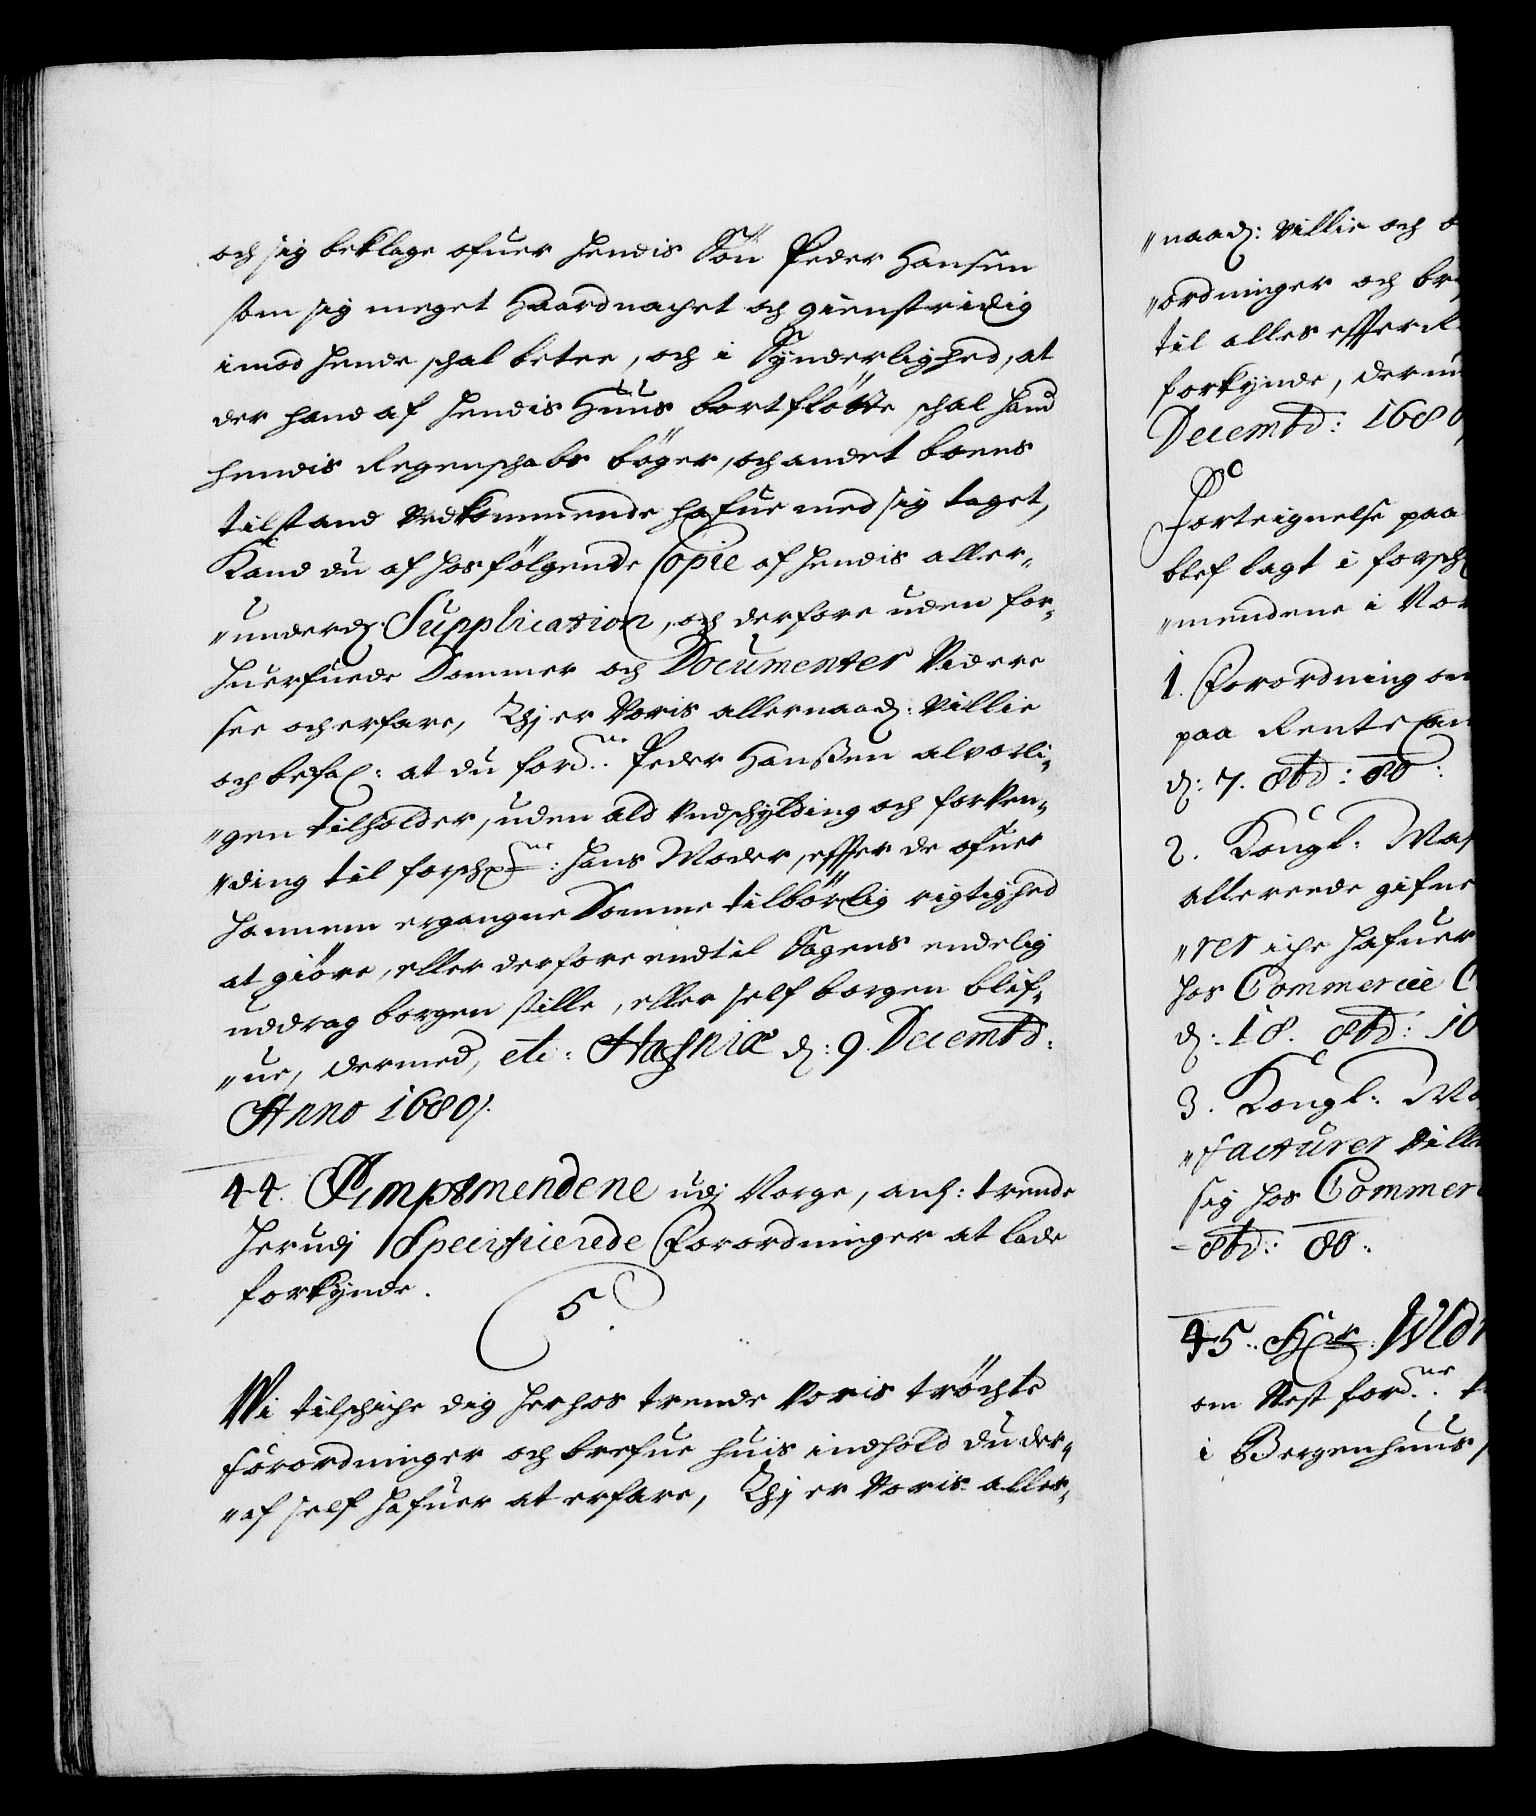 och sig beklage ofuer hendis Sön Peder Hansen
som sig meget Haardnachet och gienstridig
imod hende schal betee, och i Synderlighed, at
der hand af hendis Huus bortfløtte schal hand
hendis Regenschabs bøger, och andet boens
tilstand vedkommende hafue med sig taget,
Kand du af hosfölgende Copie af hendis aller-
"underd: Supplication, och derfore uden for-
huerfuede Domme och Documenter Videre
see och erfare, Thj er Voris allernaad: Villie
och befal: at du ford:ne Peder Hanßen alvorli-
"gen tilholder, uden ald undschylding och forven-
"ding til forsch:ne: hans Moder, effter de ofuer
hannem ergangne Domme tilbörlig rigtighed
at giöre, eller derfore indtil Sagens endelig
uddrag borgen stille, eller self borgen blif-
"ue, dermed, etc: Hafniæ d: 9. Decembr:
Anno 1680.
44. Stiftamtmendene udj Norge, anl: trende
herudj Specificerede Forordninger at lade
forkynde.
5.
Wi tilschiche dig herhos trende Voris tröchte
Forordninger och brefue huis indhold du der-
"af self hafuer at erfare, Thj er Voris aller-
"naad: Villie och
"ordninger och br
til alles effterr
forkynde,
Decembr: 1680
Forteignelse paa
blef lagt i forsch
"mendene i Nor
1. Forordning om
paa Rente
d: 7. 8br: 80:
2. Kongl: May
allereede gifne
"rer iche hafuer
hos Commercie C
d: 18. 8br: 10
3. Kongl: Ma
"facturer Vill
sig hos Commer
8br: 80:
45. Her
om Rest ford:ne
i Bergenhuus